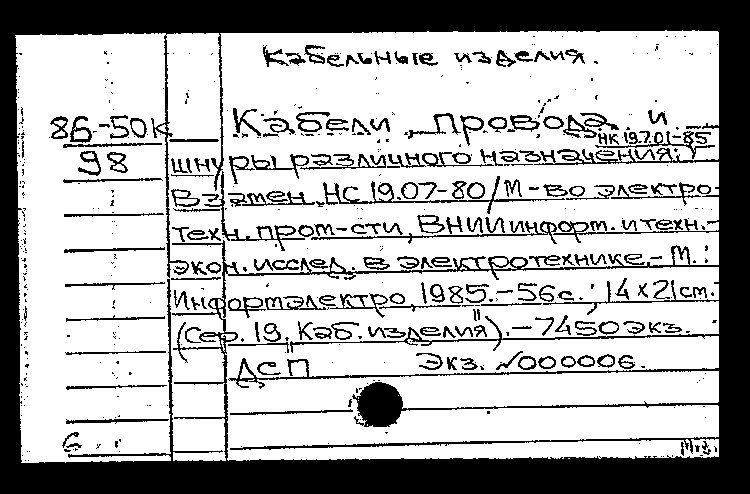 Кабельные изделия.
86-50к Кабели, провода и
НК 19.7.01-85
98 шнуры различного назначения:
Взамен НС 19.07-80/М-во электро-
техн. пром-сти, ВНИИинформ. и техн.-
экон. исслед. в электротехнике.- М.:
Информэлектро, 1985.-56с.; 14х21см.-
(Сер. 19, Каб. изделия"). -7450 экз.
ДСП" Экз. №000006.